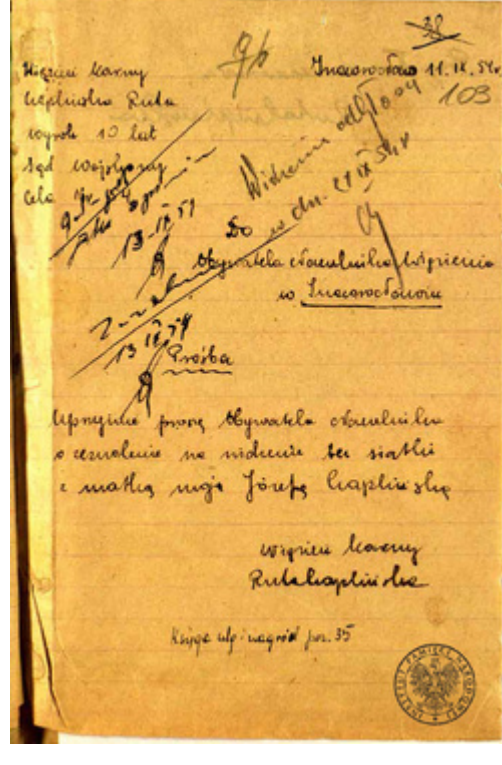 38
9/6
Inowrocław 11.IX.54r.
103
Więzień karny
Czaplińska Ruta
wyrok 10 lat
Sąd wojskowy
Cela
13-IX 54
Widzenie
w dn. 21 IX 54r
Do
Obywatela Naczelnika Więzienia
w Inowrocławiu
13 IX 54
Prośba
Uprzejmie proszę Obywatela Naczelnika
o zezwolenie na widzenie bez siatki
z matką moją Józefą Czaplińską
więzień karny
Ruta Czaplińska
Księga nagród poz. 35
INSTYTUT PAMIĘCI NARODOWEJ